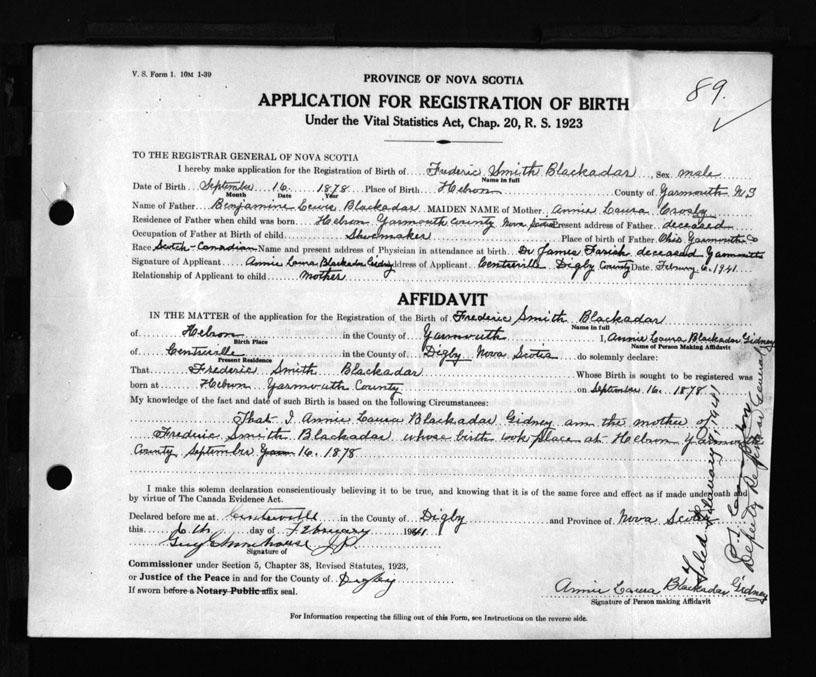 V. S. Form 1. 10M 1-39
89.
PROVINCE OF NOVA SCOTIA
APPLICATION FOR REGISTRATION OF BIRTH
Under the Vital Statistics Act, Chap. 20, R. S. 1923
TO THE REGISTRAR GENERAL OF NOVA SCOTIA
I hereby make application for the Registration of Birth of Frederic Smith Blackadar Sex male
Name in full
Date of Birth September 16. 1878 Place of Birth Hebron County of Yarmouth N.S
Month Date Year
Name of Father Benjamine Lewis Blackadar MAIDEN NAME of Mother Annie Laura Crosby
Residence of Father when child was born Hebron Yarmouth County Nova Scotia Present address of Father deceased
Occupation of Father at Birth of child Shoemaker Place of birth of Father Ohio Yarmouth Co
Race Scotch-Canadian Name and present address of Physician in attendance at birth Dr James Farish deceased Yarmouth
Signature of Applicant Annie Laura Blackadar Gidney Address of Applicant Centreville Digby County Date February 6, 1941
Relationship of Applicant to child mother
AFFIDAVIT
IN THE MATTER of the application for the Registration of the Birth of Frederic Smith Blackadar
Name in full
of Hebron in the County of Yarmouth I, Annie Laura Blackadar Gidney
Birth Place Name of Person Making Affidavit
of Centreville in the County of Digby Nova Scotia do solemnly declare:
Present Residence
That Frederic Smith Blackadar Whose Birth is sought to be registered was
born at Hebron Yarmouth County on September 16. 1878
My knowledge of the fact and date of such Birth is based on the following Circumstances:
That I Annie Laura Blackadar Gidney am the mother of
Frederic Smith Blackadar whose birth took place at Hebron Yarmouth
County September 16. 1878
I make this solemn declaration conscientiously believing it to be true, and knowing that it is of the same force and effect as if made under oath and
by virtue of The Canada Evidence Act.
Declared before me at Centreville in the County of Digby and Province of Nova Scotia
this 6th day of February 1941
J.P.
Signature of
Commissioner under Section 5, Chapter 38, Revised Statutes, 1923,
or Justice of the Peace in and for the County of Digby
If sworn before a Notary Public affix seal.
Annie Laura Blackadar Gidney
Signature of Person making Affidavit
For Information respecting the filling out of this Form, see Instructions on the reverse side.
Filed February 1941
Deputy Registrar General